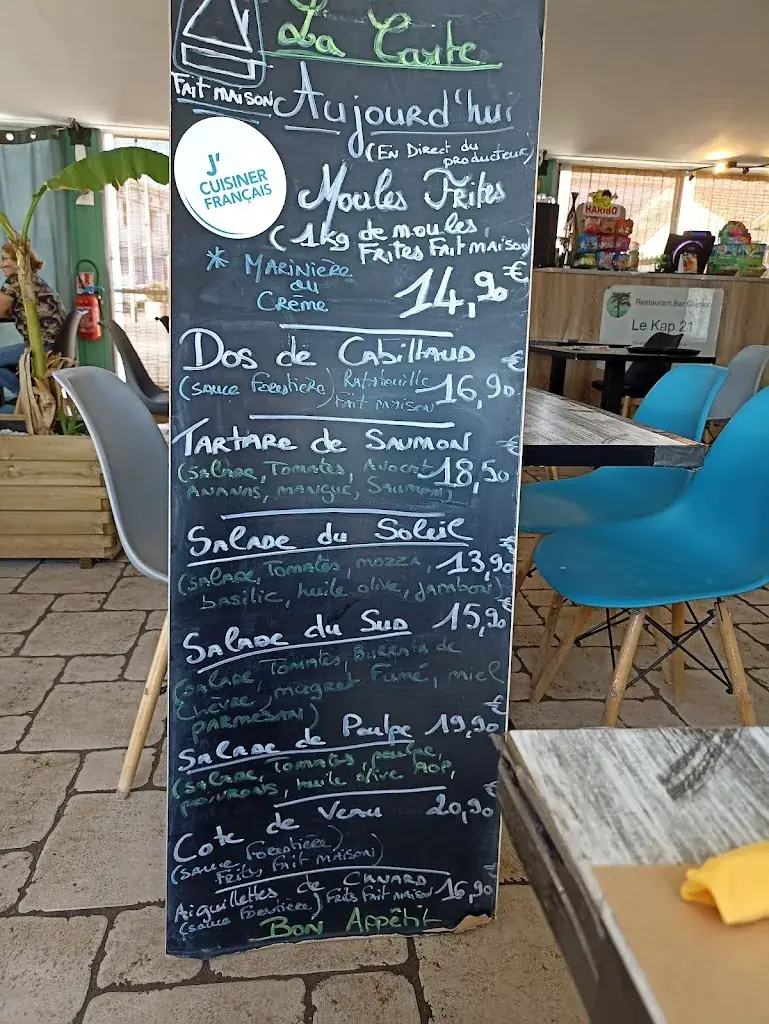 La Carte
FAIT MAISON
Aujourd'hui
(EN Direct du
producteur)
J'
CUISINER
FRANÇAIS
Moules Frites
(1kg de moules,
FRITES FAIT MAISON)
* MARINIÈRE
ou
CRÈME
14,90€
Dos de CABILLAUD €
(SAUCE FORESTIÈRE) RATATOUILLE 16,90
FAIT MAISON
TARTARE de SAUMON €
(SALADE, TOMATES, AVOCAT 18,50
ANANAS, MANGUE, SAUMON)
SALADE du SOLEIL €
(SALADE, TOMATES, MOZZA, 13,90
basilic, huile olive, jambon)
SALADE du SUD 15,90€
(SALADE, TOMATES, BURRATA de
CHÈVRE, magret Fumé, miel
PARMESAN) €
SALADE de Poulpe 19,90
(SALADE, TOMATES, poulpe,
POIVRONS, huile olive AOP,
COTE de VEAU 20,90 €
(SAUCE FORESTIÈRE)
FRITES FAIT MAISON)
AIGUILLETTES de CANARD 16,90 €
(SAUCE FORESTIÈRE) FRITES FAIT MAISON
BON APPÉTIT
HARIBO
Restaurant Bar Glacier
Le Kap 21